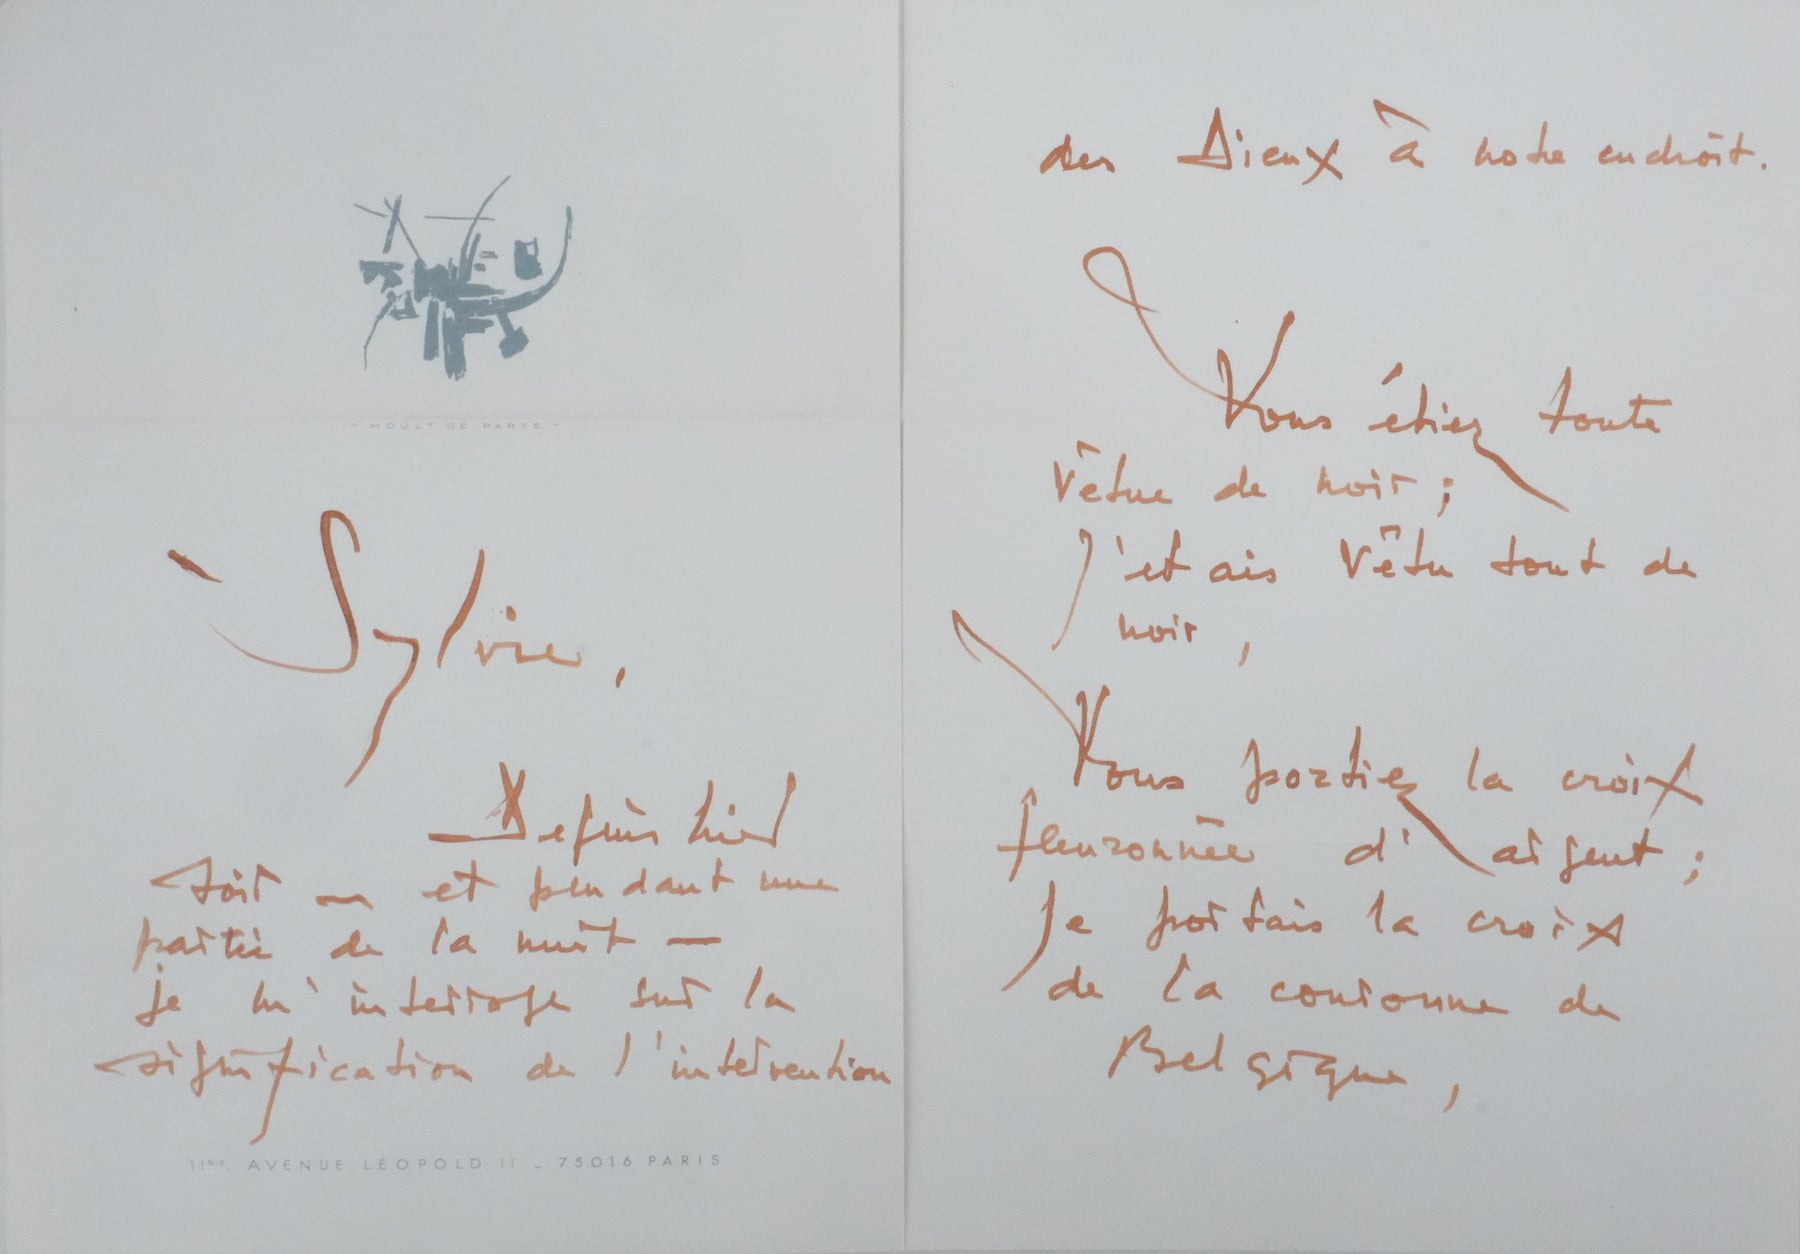 " MOULT DE PARTE "
Sylvie,
Depuis hier
soir — et pendant une
partie de la nuit —
je m'interroge sur la
signification de l'intervention
11BIS. AVENUE LÉOPOLD II _ 75016 PARIS
des Dieux à notre endroit.
Vous étiez toute
vêtue de noir ;
J'etais vêtu tout de
noir,
Vous portiez la croix
fleuronnée d'argent ;
Je portais la croix
de la couronne de
Belgique,